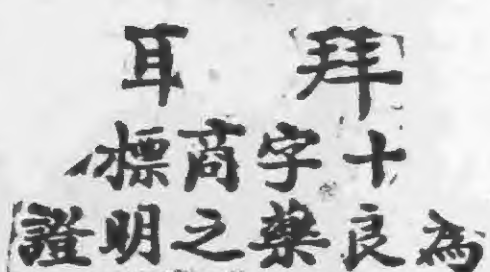 拜耳
十字商標
為良藥之明證